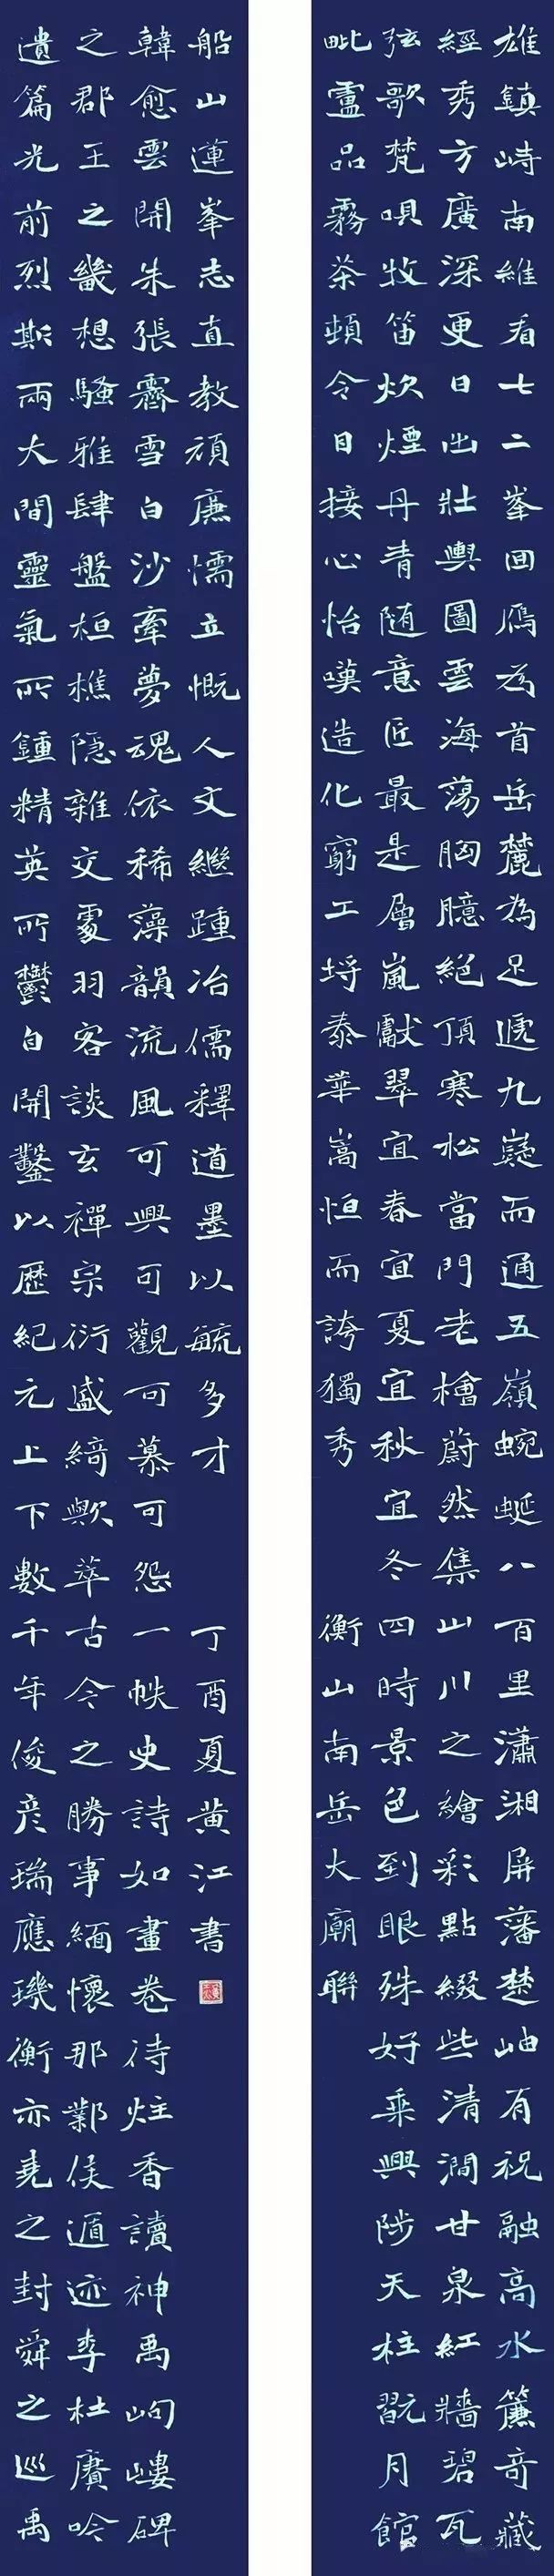 雄鎮峙南維看七二峯回雁為首岳麓為足遞九嶷而通五嶺蜿蜒八百里瀟湘屏藩楚岫有祝融高水簾奇藏
經秀方廣深更日出壯輿圖雲海蕩胸臆絕頂寒松當門老檜蔚然集山川之繪彩點綴些清澗甘泉紅牆碧瓦
弦歌梵唄牧笛炊煙丹青随意匠最是層嵐獻翠宜春宜夏宜秋宜冬四時景色到眼殊好乘興陟天柱翫月館
毗盧品霧茶頓令目接心怡嘆造化窮工埒泰華嵩恒而誇獨秀
衡山南岳大廟聯
遺篇光前烈斯兩大間靈氣所鍾精英所鬱自開鑿以歷紀元上下數千年俊彦瑞應璣衡亦堯之封舜之巡禹
之郡王之畿想騷雅肆盤桓樵隱雜交處羽客談玄禪宗衍盛綺歟萃古今之勝事緬懷那鄴侯遁迹李杜賡吟
韓愈雲開朱張霽雪白沙牽夢魂依稀藻韻流風可興可觀可慕可怨一帙史詩如畫卷待炷香讀神禹岣嶁碑
船山蓮峯志直教頑廉懦立慨人文繼踵冶儒釋道墨以毓多才
丁酉夏黄江書